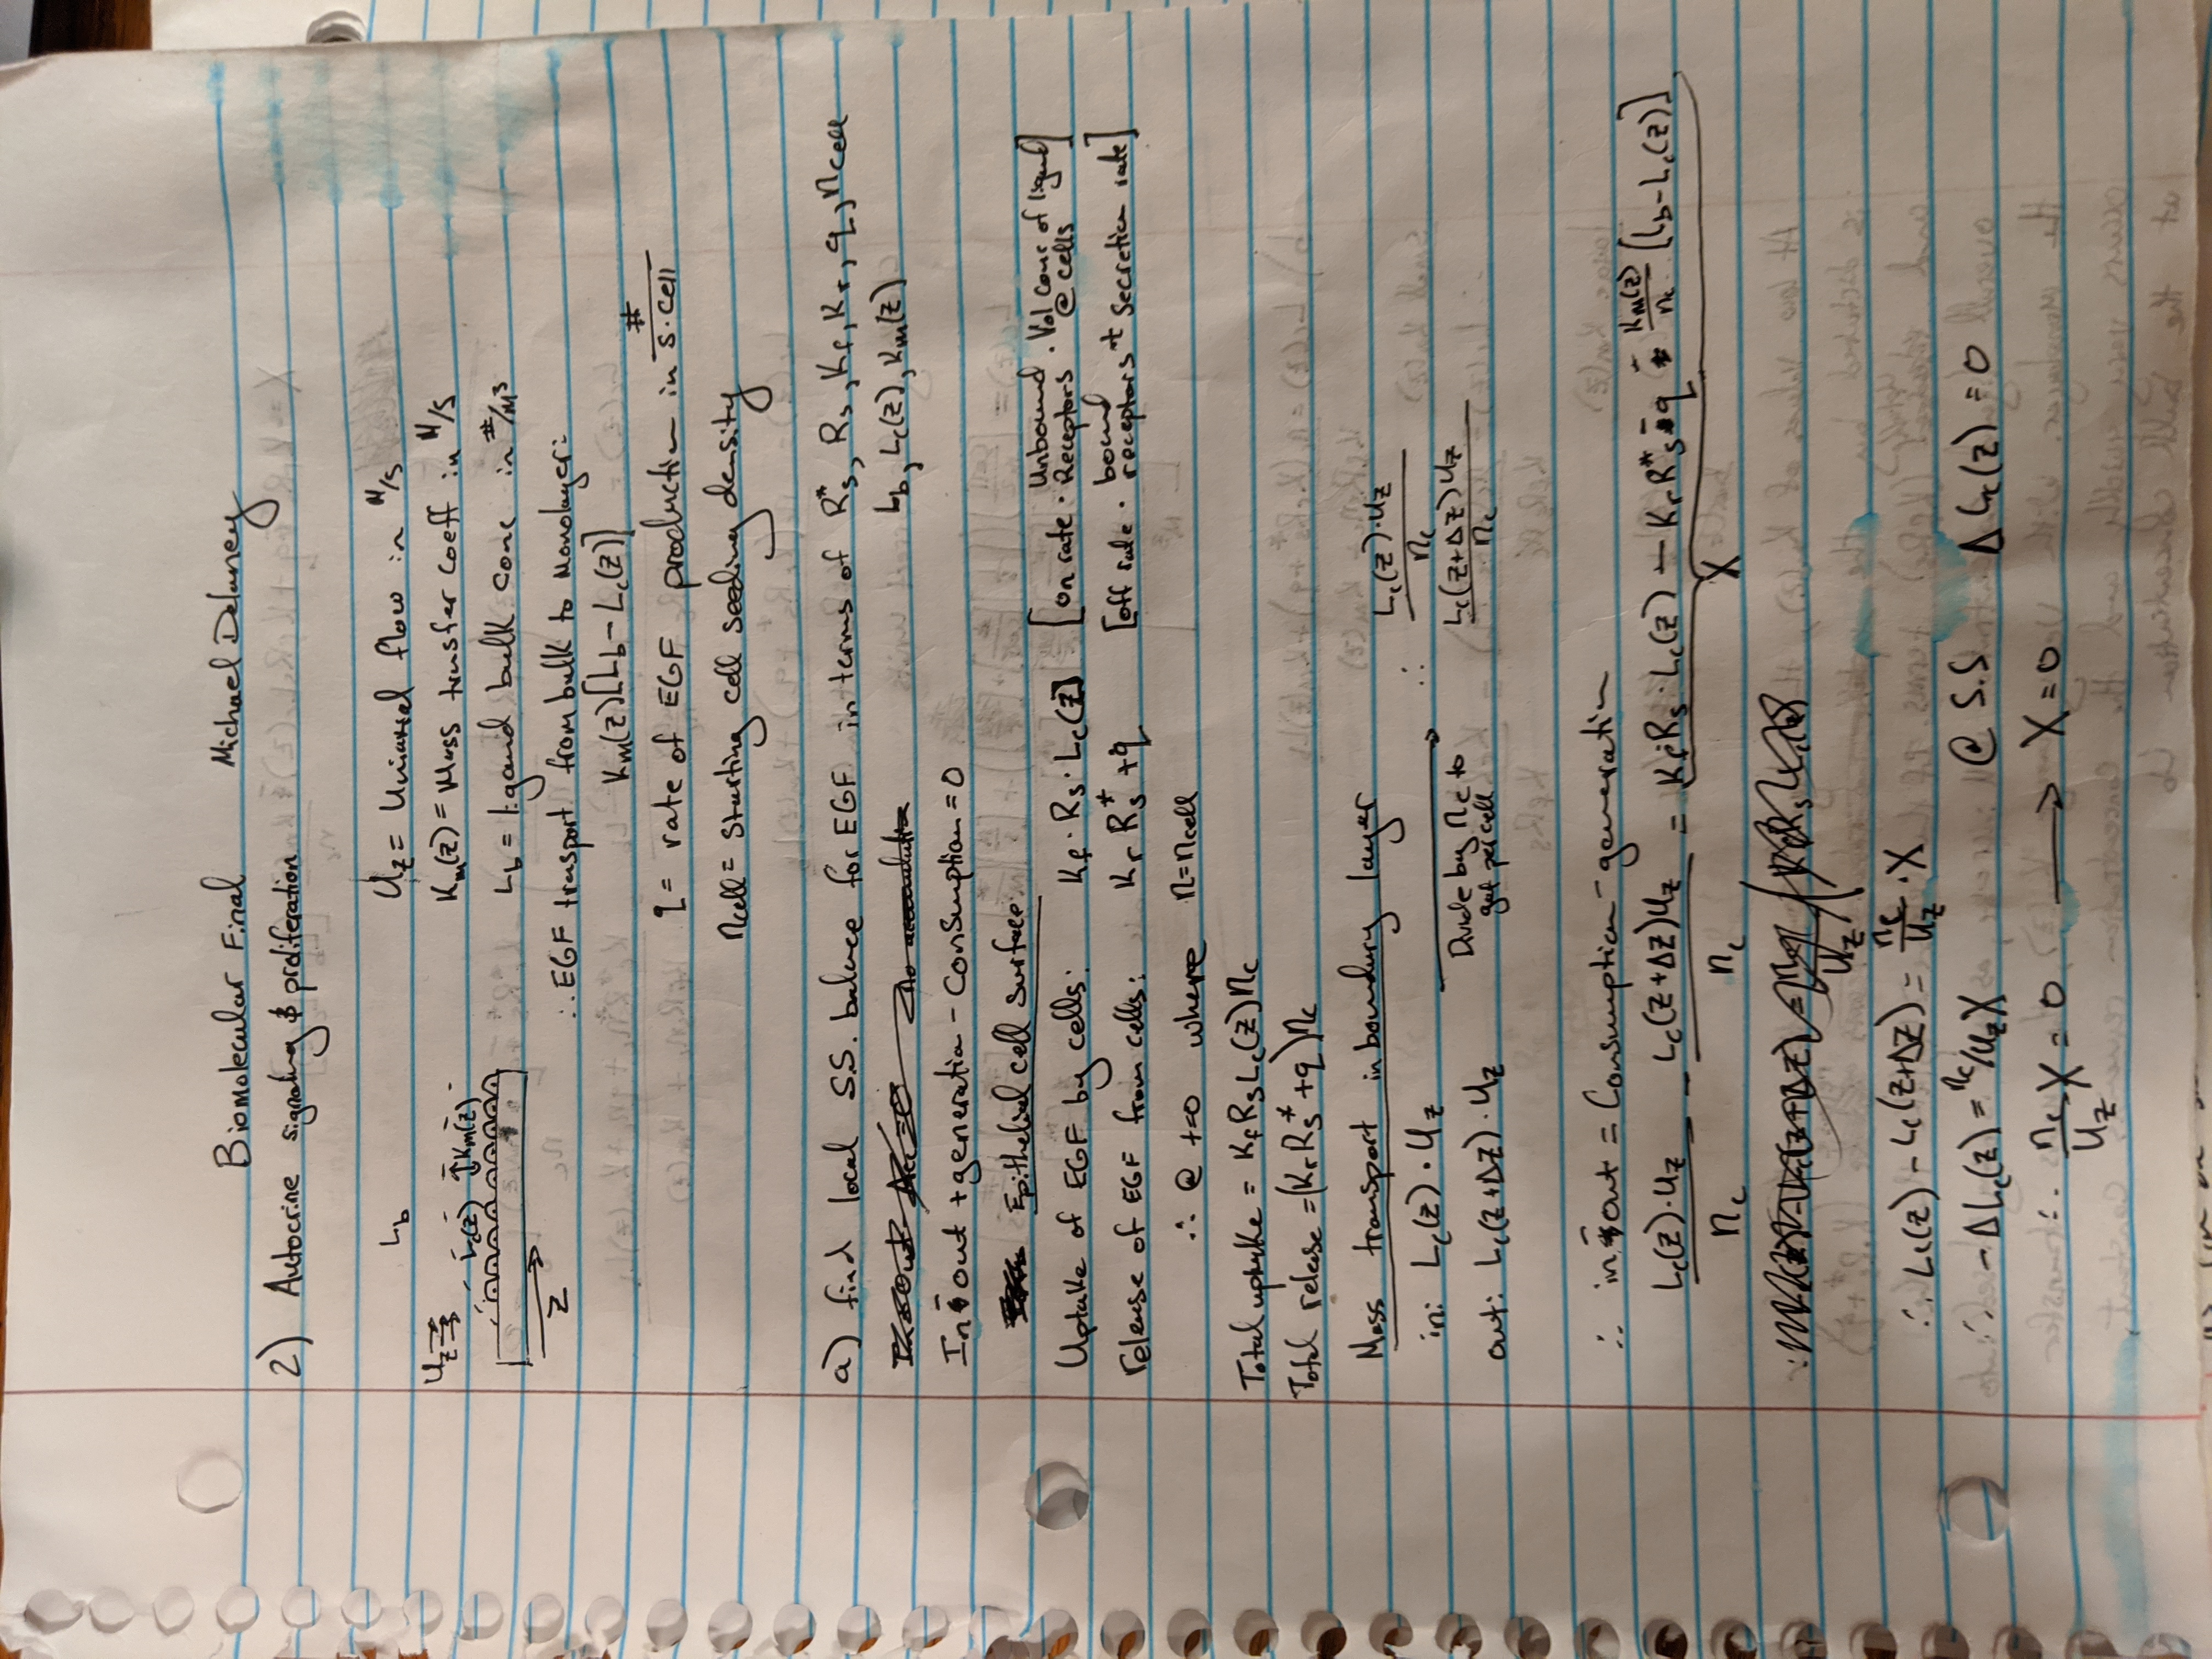 Biomolecular Final Michael Delaney
2) Autocrine signaling & proliferation
Lb
Uz
Lc(z) ↕Km(z)
z
Uz = Uniaxial flow in M/s
Km(z) = Mass transfer coeff in M/s
Lb = ligand bulk conc in #/M³
∴ EGF transport from bulk to Monolayer:
Km(z)[Lb - Lc(z)]
q = rate of EGF production in #/s·cell
ncell = Starting cell seeding density
a) find local S.S. balance for EGF in terms of Rs*, Rs, Kf, Kr, q, ncell
Lb, Lc(z), Km(z)
In - out + generation - Consumption = 0
Epithelial cell surface:
Uptake of EGF by cells: Kf · Rs · Lc(z) [on rate · Unbound Receptors · Vol conc of ligand @ cells]
release of EGF from cells: Kr Rs* + q [off rate · bound receptors + Secretion rate]
∴ @ t=0 where n=ncell
Total uptake = Kf Rs Lc(z) nc
Total release = (Kr Rs* + q) nc
Mass transport in boundary layer
in: Lc(z) · Uz → ∴ Lc(z)·Uz / nc
Divide by nc to get per cell
out: Lc(z+Δz) · Uz Lc(z+Δz) Uz / nc
∴ in - out = Consumption - generation
Lc(z)·Uz / nc - Lc(z+Δz)Uz / nc = Kf Rs · Lc(z) - Kr Rs* - q - Km(z)/nc [Lb - Lc(z)]
X
∴ Lc(z) - Lc(z+Δz) = nc/Uz · X
∴ -ΔLc(z) = nc/Uz X @ S.S ΔLc(z) = 0
∴ nc/Uz X = 0 → X = 0